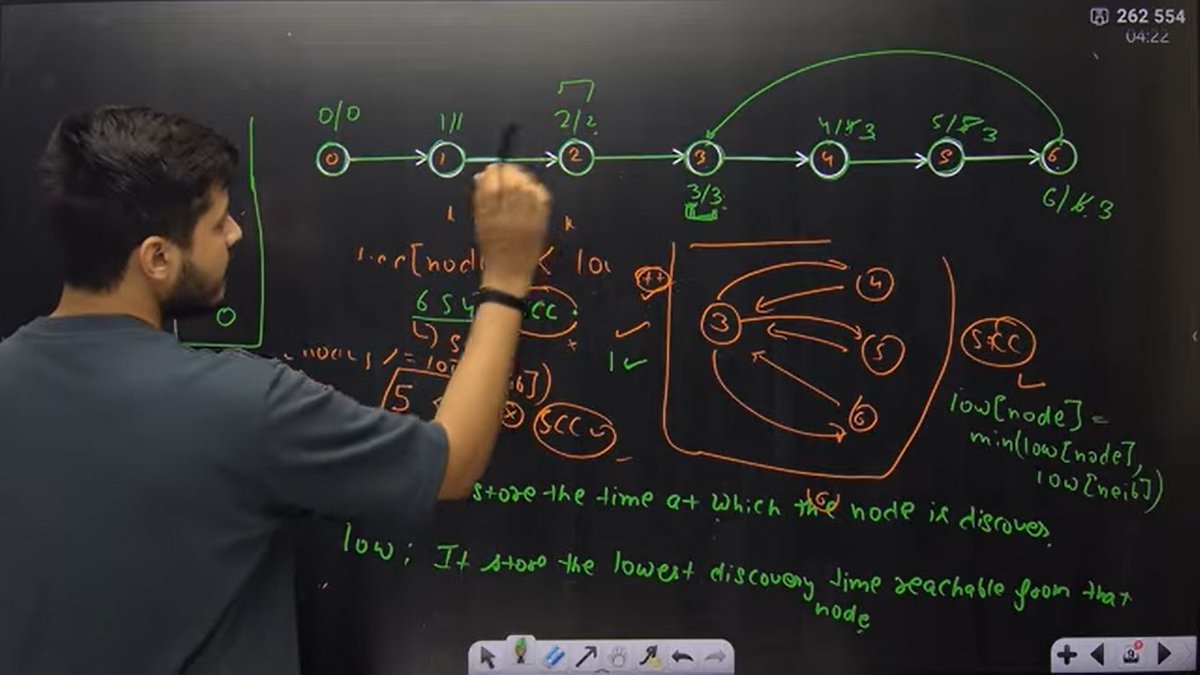 262 554
04:22
0/0
1/1
2/2
4/4 3
5/5 3
0
1
2
3
4
5
6
3/3
6/6 3
6 5 4
++
3
4
5
6
SCC
1 ✓
5
SCC
low[node] =
min(low[node],
low[neib])
store the time at which the node is discover
low: It store the lowest discovery time reachable from that
node